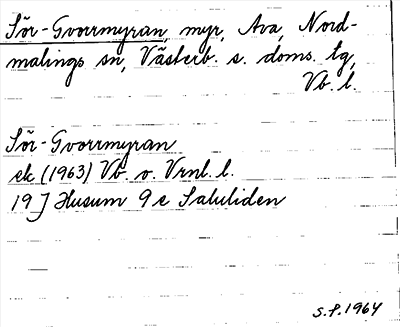 Sör-Gvorrmyran, myr, Ava, Nord-
malings sn, Västerb. s. doms. tg,
Vb. l.
Sör-Gvorrmyran
ek (1963) Vb. o. Vrnl. l.
19 J Husum 9 e Saluliden
S.P. 1964